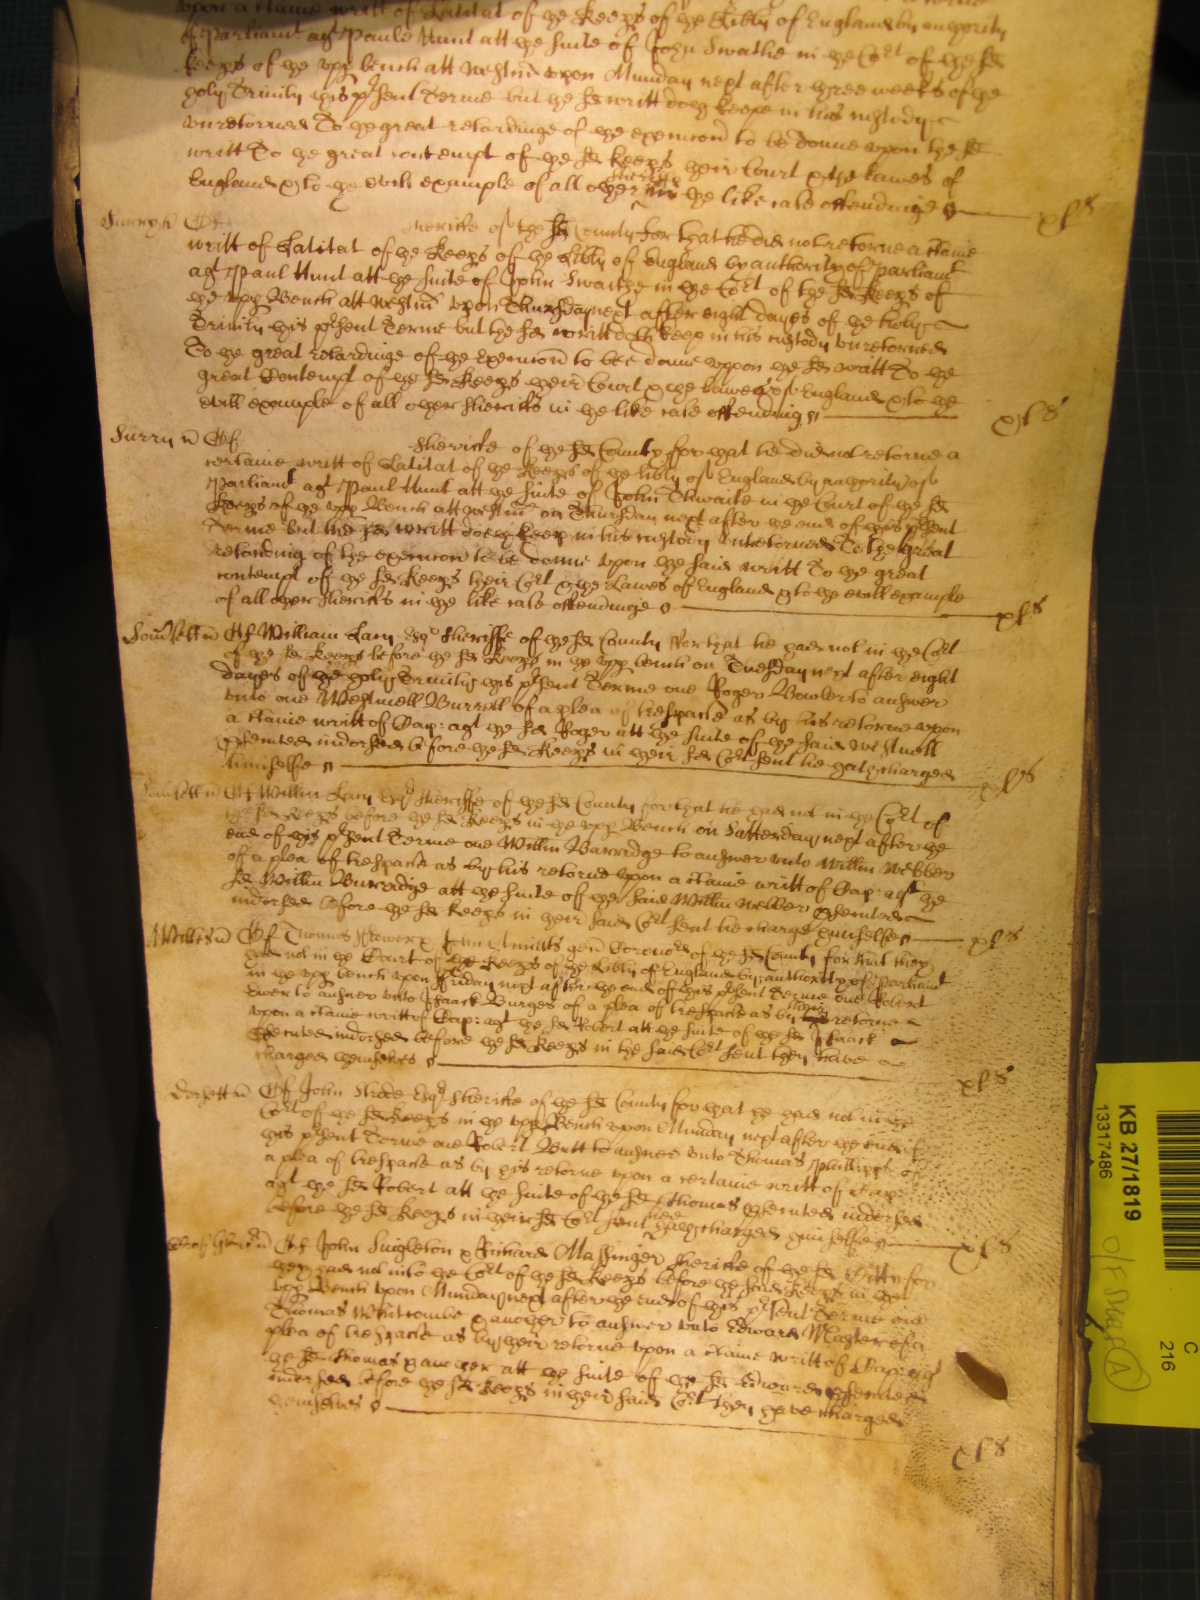 upon a ctaine writt of Latitat of the Keeps of the Libty of England by authority
of Parliamt agt Paule Hunt att the suite of John Swaithe in the Cort of the sd
Keeps of the upp bench att Westmr upon Munday next after three weeks of the
holy Trinity this psent Terme but the sd writt doth keepe in his custody
unretorned To the great retardinge of the execucon to be donne upon the sd
writt To the great contempt of the sd Keeps their Court & the Lawes of
England & to the evill example of all other sheriffs in the like case offendinge xls
Surry ss Of sheriffe of the sd County for that he did not retorne a ctaine
writt of Latitat of the Keeps of the Libty of England by authority of Parliamt
agt Paul Hunt att the suite of John Swaithe in the Cort of the sd Keeps of
the upp Bench att Westmr upon Thursday next after eight dayes of the holy
Trinity this psent Terme but the sd writt doth keep in his custody unretorned
To the great retardinge of the execucon to bee donne uppon the sd writt To the
great Contempt of the sd Keeps their Court & the Lawes of England & to the
evill example of all other sheriffs in the like case offending xls
Surry ss Of Sheriffe of the sd County for that he did not retorne a
certaine writt of Latitat of the Keeps of the libty of England by authority of
Parliamt agt Paul Hunt att the suite of John Thwaite in the Court of the sd
Keeps of the upp Bench att Westmr on Thursday next after the end of this psent
Terme but the sd writt doth keep in his custody unretorned To the great
retarding of the execucon to be donne upon the said writt To the great
contempt of the sd Keeps their Cort & the Lawes of England & to the evill example
of all other sheriffs in the like case offendinge xls
Somsett ss Of William Lacy Esqr Sheriffe of the sd County For that he had not in the Cort
of the sd Keeps before the sd Keeps in the upp bench on Tuesday next after eight
dayes of the holy Trinity this psent Terme one Roger Bowler to answer
unto one Westmell Burrell of a plea of trespasse as by his retorne upon
a ctaine writt of Cap: agt the sd Roger att the suite of the said Westmell
psented indorsed before the sd Keeps in their sd Cort sent he hath charged
himselfe xls
Somsett ss Of Willm Lacy Esqr Sheriffe of the sd County for that he had not in the Cort of
the sd Keeps before the sd Keeps in the upp Bench on Satterday next after the
end of this psent Terme one Willm Burridge to answer unto Willm Webber
of a plea of trespasse as by his retorne upon a ctaine writt of Cap: agt the
sd Willm Burridge att the suite of the said Willm Webber psented
indorsed before the sd Keeps in their said Cort sent he charge himselfe xls
Wiltss ss Of Thomas & John gen Coronors of the sd County for that they
had not in the Court of the Keeps of the Libty of England by authority of Parliamt
in the upp bench upon Friday next after the end of this psent Terme one Robert
to answer unto Isaack Burges of a plea of trespasse as by their retorne
upon a ctaine writt of Cap: agt the sd Robert att the suite of the sd Isaack
psented indorsed before the sd Keeps in the said Cort sent they have
charged themselves xls
Dorsett ss Of John Esqr Sheriffe of the sd County for that he had not in the
Cort of the sd Keeps in the upp Bench upon Munday next after the end of
this psent Terme one Robert Butt to answer unto Thomas Phillipps of
a plea of trespasse as by his retorne upon a certaine writt of Cap:
agt the sd Robert att the suite of the sd Thomas psented indorsed
before the sd Keeps in their sd Cort sent hee hath charged himselfe xls
Of John Singleton & Richard Massinger Sheriffe of the sd Citty for
they had not into the Cort of the sd Keeps before the said Keeps in the
upp Bench upon Munday next after the end of this psent Terme one
Thomas Whitcombe & another to answer unto Edward of a
plea of trespasse as by their retorne upon a ctaine writt of Cap: agt
the sd Thomas & another att the suite of the sd Edward psented
indorsed before the sd Keeps in their said Cort they have charged
themselves cls
KB 27/1819
13317486
C
216